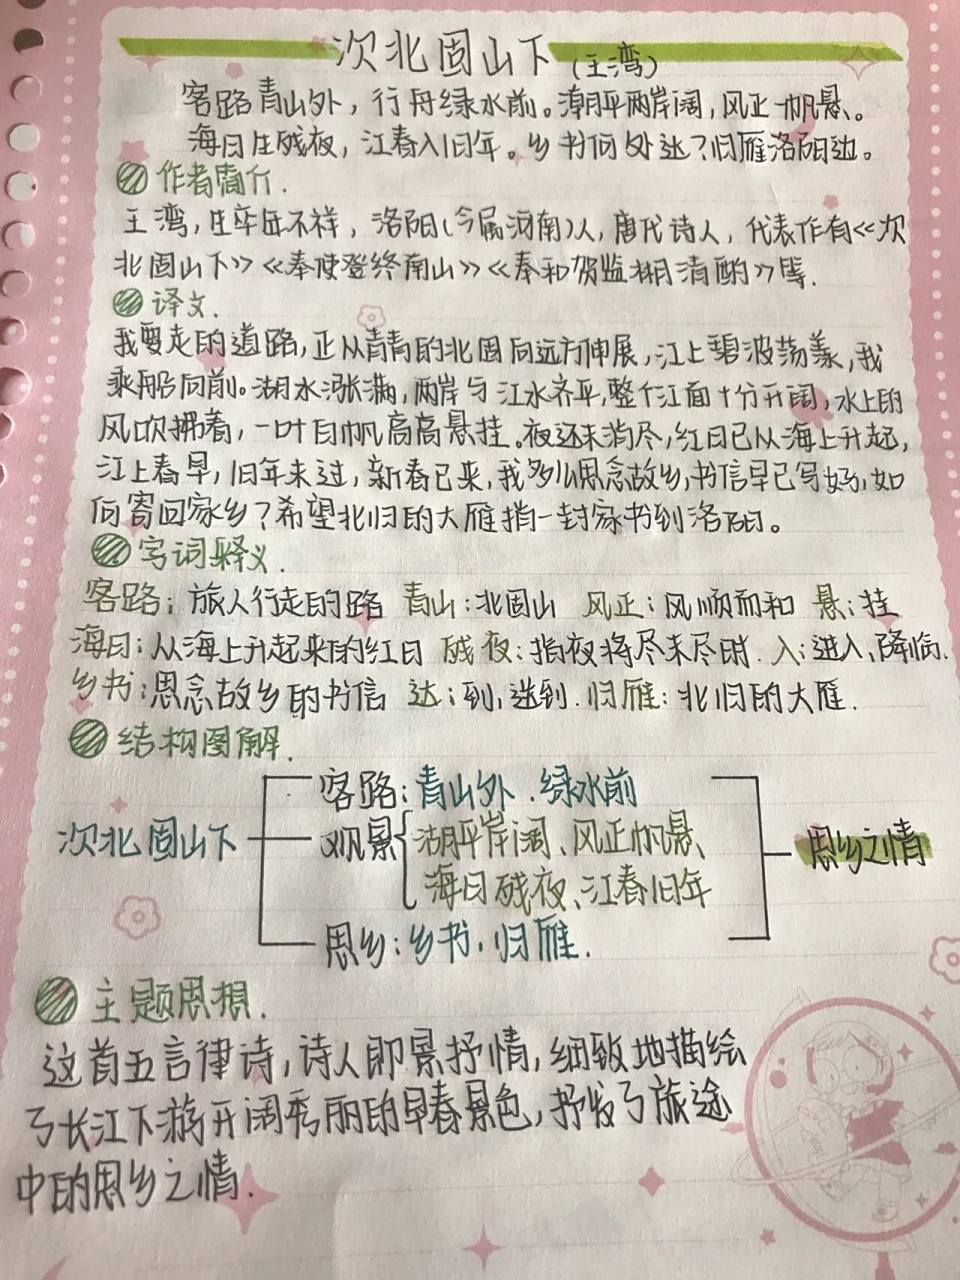 次北固山下(王湾)
客路青山外，行舟绿水前。潮平两岸阔，风正一帆悬。
海日生残夜，江春入旧年。乡书何处达？归雁洛阳边。
作者简介.
王湾，生卒年不详，洛阳(今属河南)人，唐代诗人，代表作有《次
北固山下》《奉使登终南山》《奉和贺监林月清酌》等.
译文.
我要走的道路，正从青青的北固向远方伸展，江上碧波荡漾，我
乘船向前。湖水涨满，两岸与江水齐平，整个江面十分开阔，水上的
风吹拂着，一叶白帆高高悬挂。夜还未消尽，红日已从海上升起，
江上春早，旧年未过，新春已来，我多么思念故乡，书信早已写好，如
何寄回家乡？希望北归的大雁捎一封家书到洛阳。
字词释义.
客路：旅人行走的路 青山：北固山 风正：风顺而和 悬：挂
海日：从海上升起来的红日 残夜：指夜将尽未尽时. 入：进入、降临.
乡书：思念故乡的书信 达：到，送到. 归雁：北归的大雁.
结构图解.
客路：青山外.绿水前
次北固山下 观景{湖平岸阔、风正帆悬、 思乡之情
海日残夜、江春旧年
思乡：乡书.归雁.
主题思想.
这首五言律诗，诗人即景抒情，细致地描绘
了长江下游开阔秀丽的早春景色，抒发了旅途
中的思乡之情.